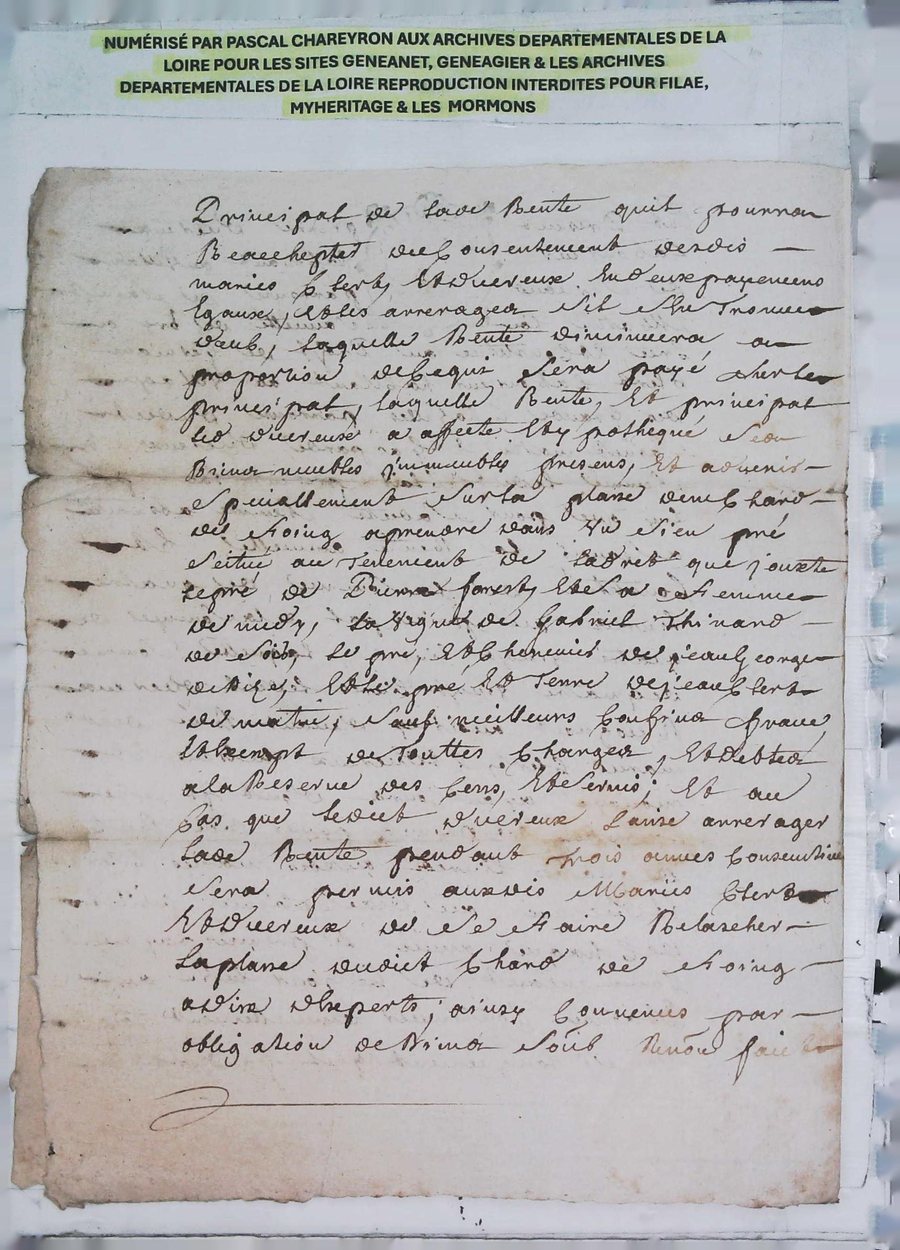 NUMÉRISÉ PAR PASCAL CHAREYRON AUX ARCHIVES DEPARTEMENTALES DE LA
LOIRE POUR LES SITES GENEANET, GENEAGIER & LES ARCHIVES
DEPARTEMENTALES DE LA LOIRE REPRODUCTION INTERDITES POUR FILAE,
MYHERITAGE & LES MORMONS
Principal de lade Rente quil pourra
Reachepter du Consentement desdis
maries Clerb, Et duereux En deux payemens
Egaux, Et les arrerages sil s'En Trouue
deub, laquelle Rente diminuera a
proportion de Ce qui sera payé sur le
principal, laquelle Rente, Et principal
led duereux a affecte Et ypothequé ses
Biens meubles jmmeubles presens, Et aduenir
specialement sur la place d'un Chard
de foing a prendre dans Vn sien pré
scitué au Tenement de que jouxte
le pré de Pierre forest, Et de sa femme
de midy, la Vigne de Gabriel Thinard
de soir, le pré, Et Cheneuier de jean George
de bize, Et le pré Et Terre de jean Clerb
de matin, sauf meilleurs Confins franc
Et Exempt de Touttes Charges, Et debtes
a la Reserue des Cens, Et seruis; Et au
Cas que ledict duereux laisse arrerager
lade Rente pendant Trois annees Consecutiues
sera permis auxdis Maries Clerb
Et duereux de se faire Relascher
la place dudict Chard de foing
a dire d'Experts; ainsy Conuenus par
obligation de Biens soub Renon faict